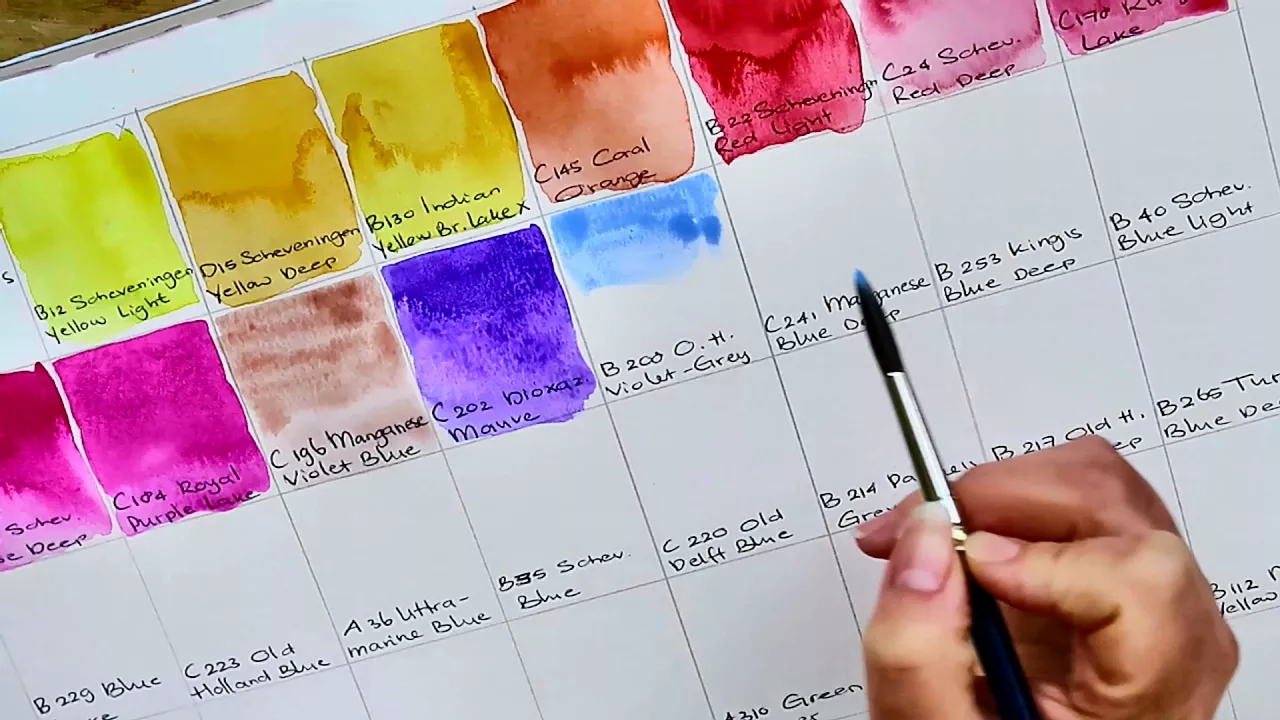 C178 Ru
Lake
C24 Schev.
Red Deep
B22 Scheveningn
Red Light
C145 Coral
Orange
B130 Indian
Yellow Br. Lake x
D15 Scheveningen
Yellow Deep
B12 Scheveningen
Yellow Light
s
B 40 Schev.
Blue Light
B 253 Kingis
Blue Deep
C241 Manganese
Blue Deep
B 200 O. H.
Violet-Grey
C 202 Dioxaz.
Mauve
C 196 Manganese
Violet Blue
C184 Royal
Purple Lake
Schev.
Deep
B265 Tur
Blue De
B 217 Old H.
B 214
Grey
C 220 Old
Delft Blue
B35 Schev.
Blue
A 36 Ultra-
marine Blue
C 223 Old
Holland Blue
B 229 Blue
B 112
Yellow
A310 Green